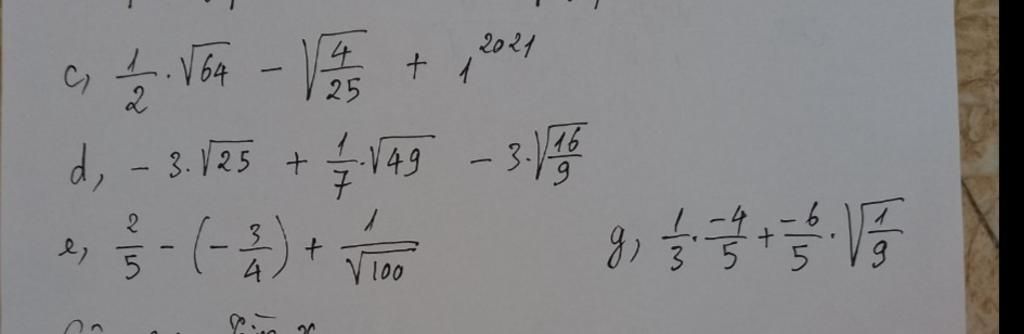 c, 1/2 · √64 − √(4/25) + 1^2021
d, − 3 · √25 + 1/7 · √49 − 3 · √(16/9)
e, 2/5 − (−3/4) + 1/√100
g, 1/3 · −4/5 + −6/5 · √(1/9)